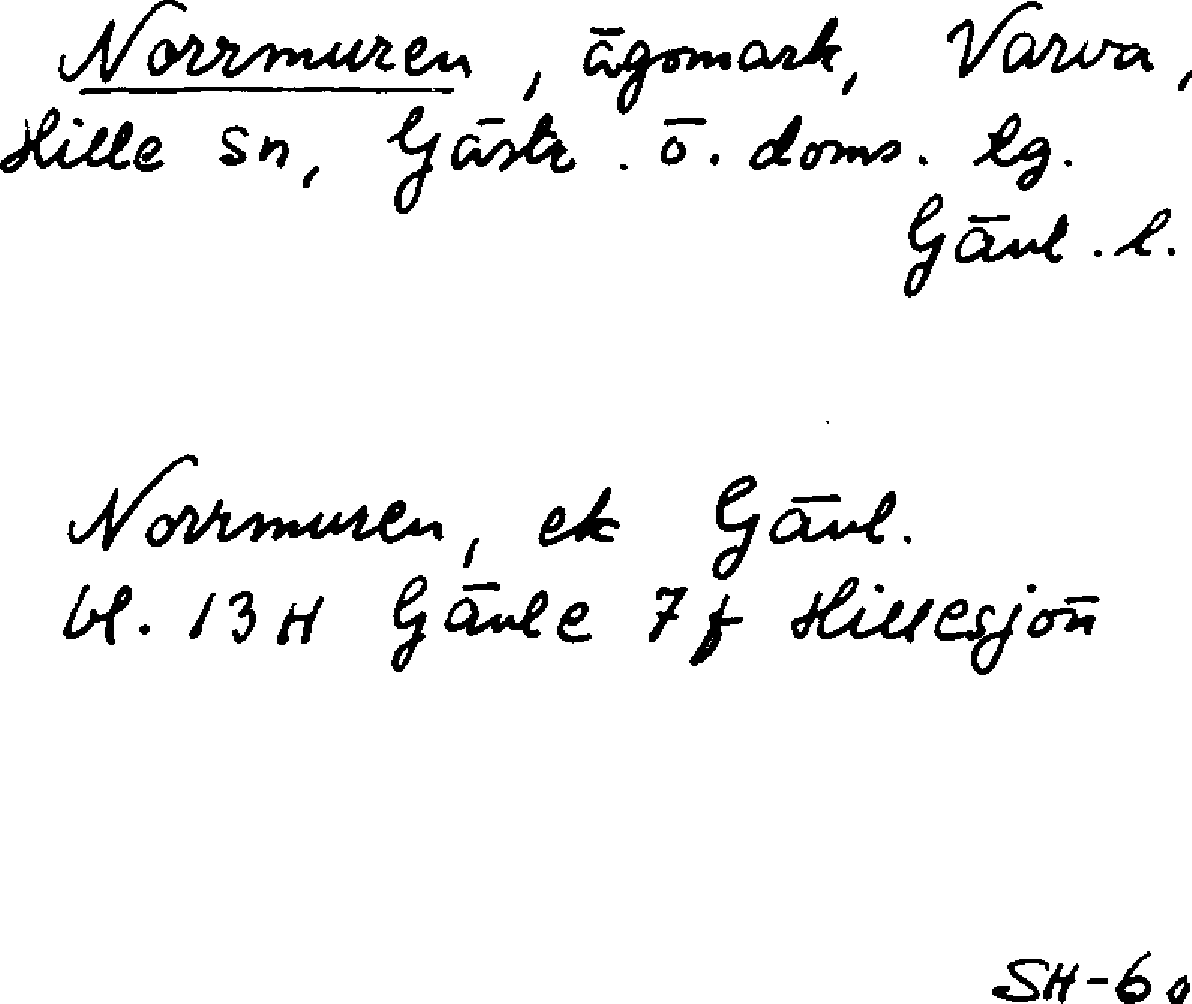 Norrmuren, ägomark, Varva,
Hille sn, Gästr. ö. doms. lg.
Gävl. l.
Norrmuren, ek Gävl.
bl. 13H Gävle 7f Hillesjön
SH-60